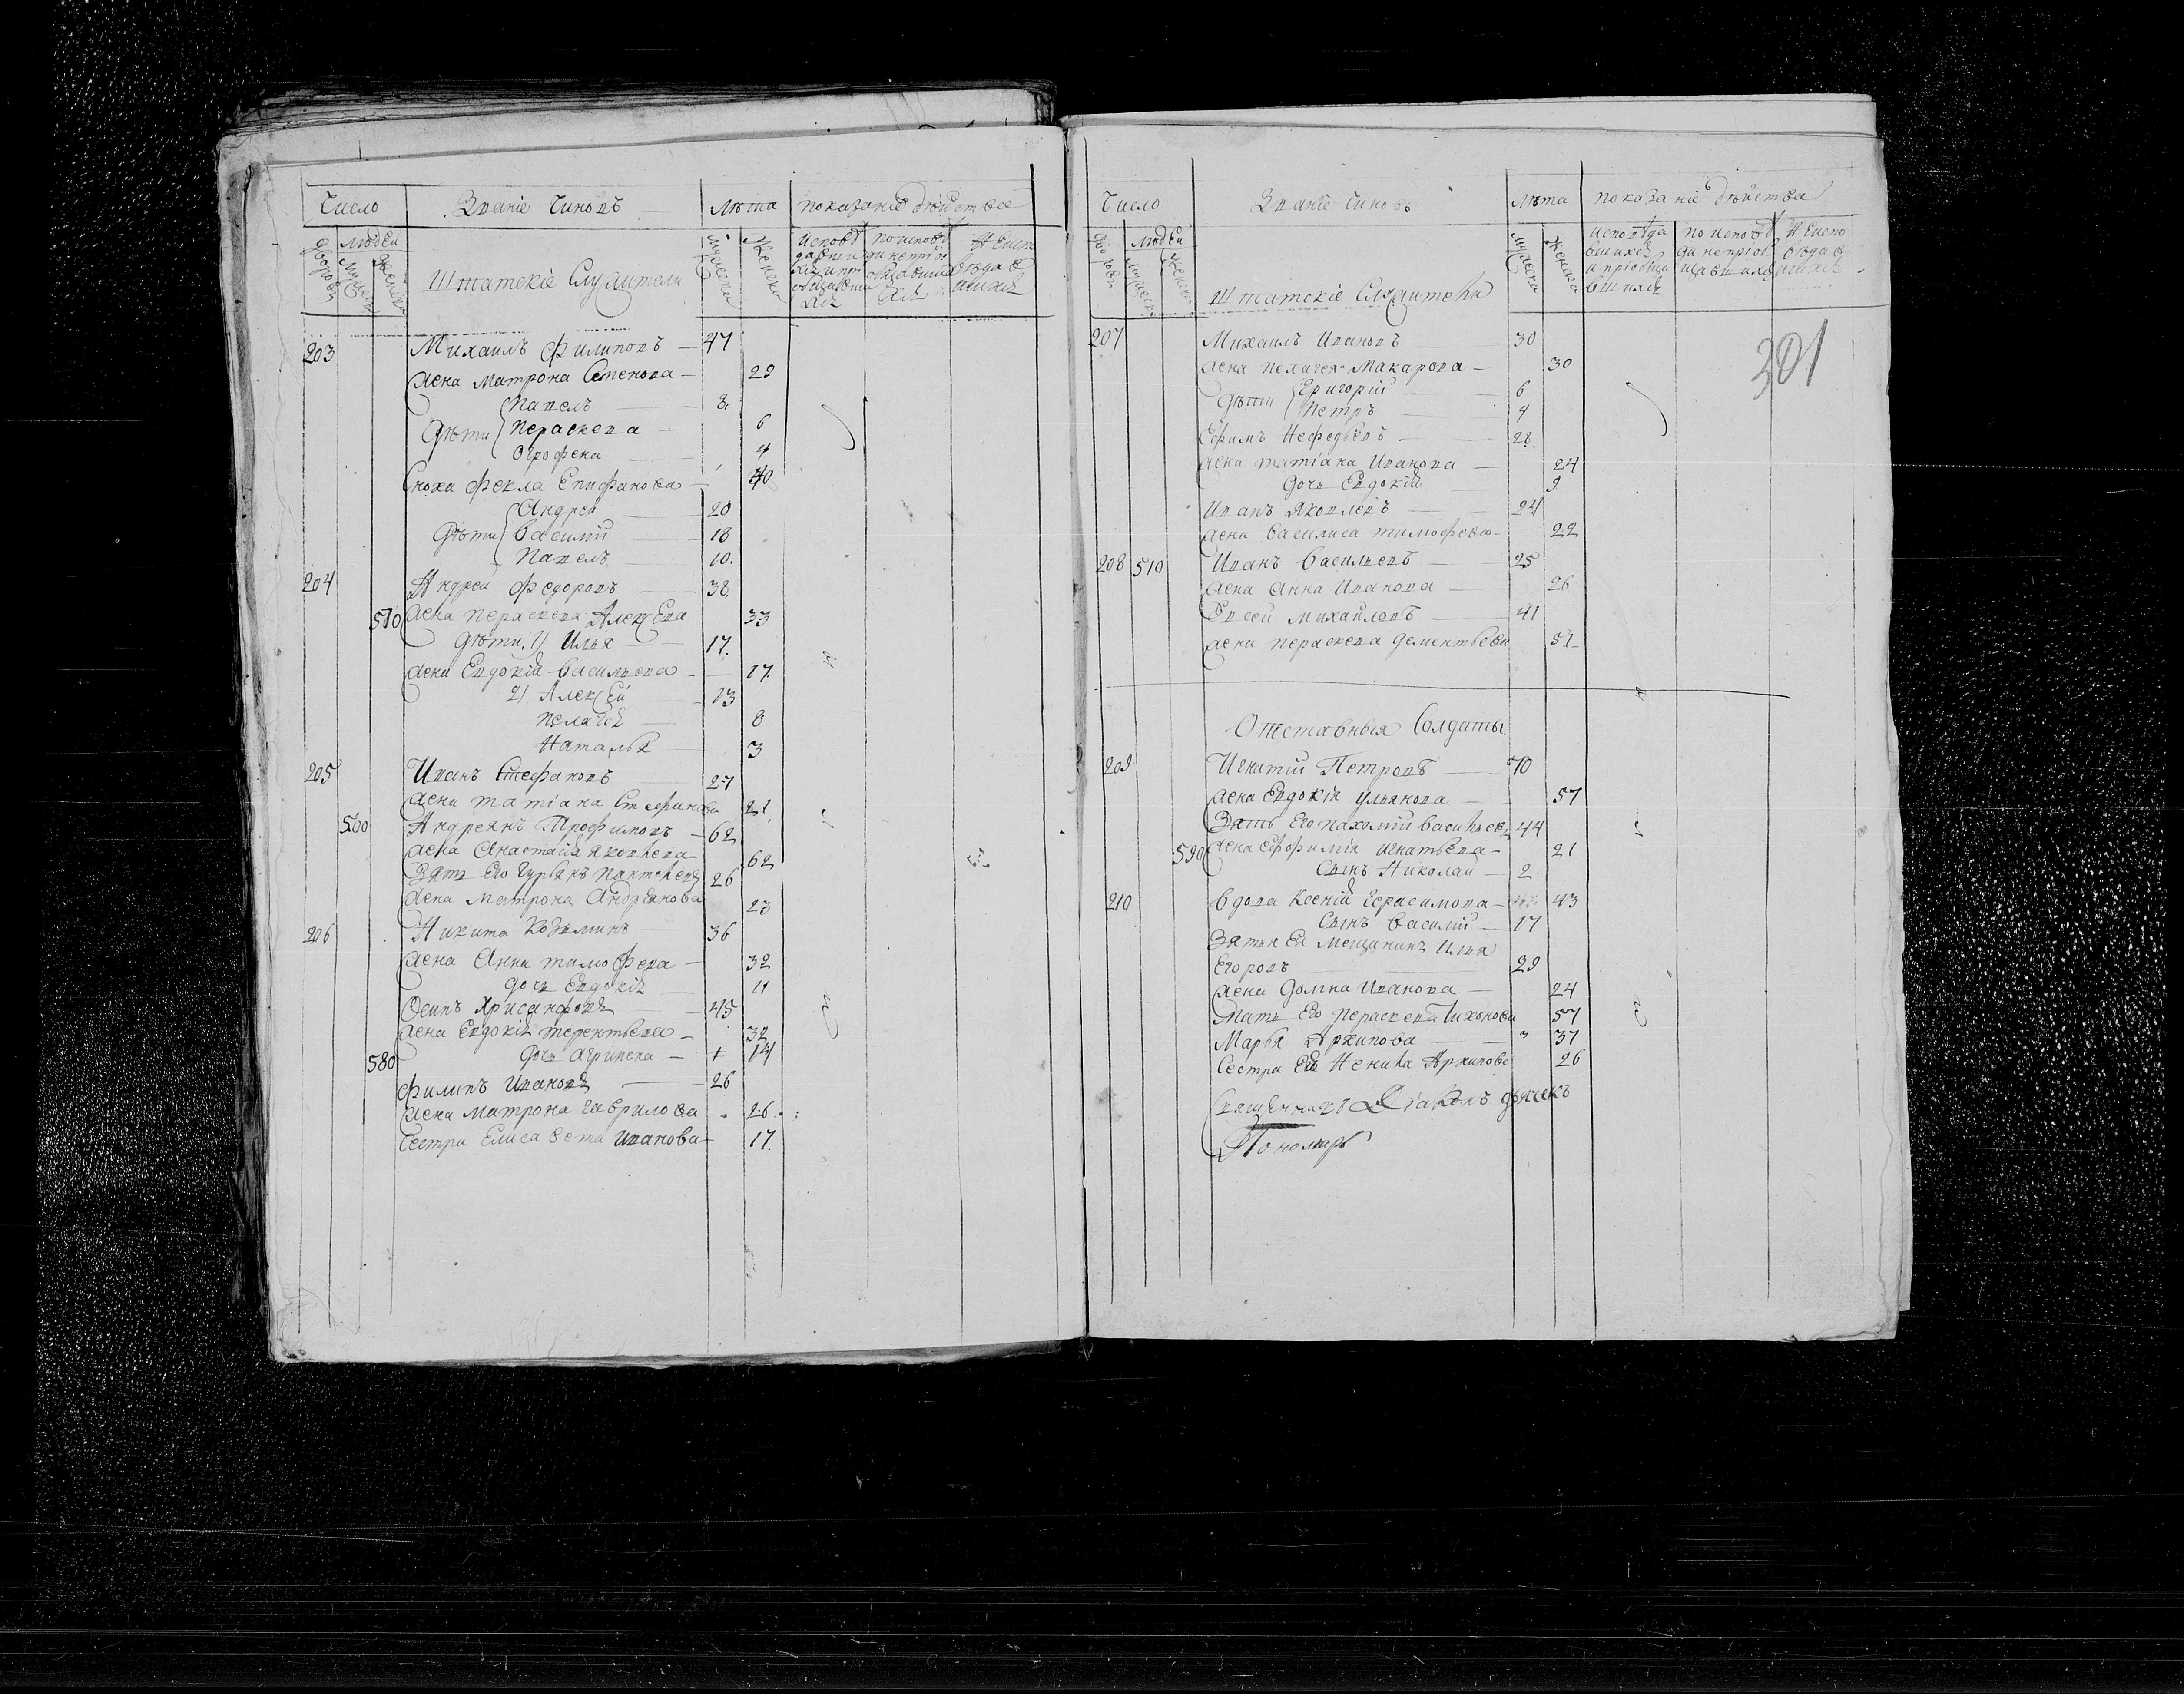 Число Званіе Чиновъ Лѣта показаніе дѣйства
дворовъ людей мужеска женска Штатскіе Служители мужеска женска
203 Михаилъ Филиповъ — 47
жена Матрона Семенова — 29
Павелъ — 8
Дѣти Пераскева — 6
Огрофена — 4
Сноха Фекла Епифанова — 40
Андрей — 20
Дѣти Василій — 18
Павелъ — 10.
204 Андрей Федоровъ — 38
570 жена Пераскева АлекѢева 33
Дѣти 1) Илья — 17.
жена Евдокія Васильева — 17
2) Алексѣй — 13
Пелагея — 8
Наталья — 3
205 Иванъ Стефановъ — 27
жена Татіана Стефанова 21
500 Андреянъ Трофимовъ — 62
жена Анастасія Яковлева — 62
Зять Его Гурьянъ 26
жена Матрона Андреянова 23
206 Никита Козьминъ — 36
жена Анна Тимофева — 32
дочь Евдокія — 11
Осипъ Хрисанфовъ — 45
жена Евдокія Терентьева — 32
580 дочь Агрипена — 14
Филипъ Ивановъ — 26
жена Матрона Гаврилова 26
Сестра Елисавета Иванова — 17.
Число Званіе Чиновъ Лѣта показаніе дѣйства
дворовъ людей мужеска женска Штатскіе Служители мужеска женска
301
207 Михаилъ Ивановъ 30
жена Пелагея Макарова — 30
Дѣти Григорій — 6
Петръ — 4
Ефимъ Нефедьевъ — 28
жена Татіана Иванова — 24
дочь Евдокія — 9
Иванъ Яковлевъ — 24
жена Василиса Тимофева — 22
208 510 Иванъ Васильевъ — 25
жена Анна Иванова — 26
Евсей Михайловъ — 41
жена Пераскева Дементьева 51
Отставныя Солдаты
209 Игнатій Петровъ — 70
жена Евдокія Ульянова — 57
Зять Его Пахомій Васильевъ 44
590 жена Ефимія Игнатьева — 21
Сынъ Николай — 2
210 Вдова Ксенія Герасимова — 43
Сынъ Василій — 17
Зять Ея Мещанинъ Илья
Егоровъ 29
жена Домна Иванова — 24
Мать Его Пераскева Тихонова 57
Марья Архипова — 37
Сестра Ея Архипова 26
Священникъ Діаконъ Дьячекъ
Пономарь